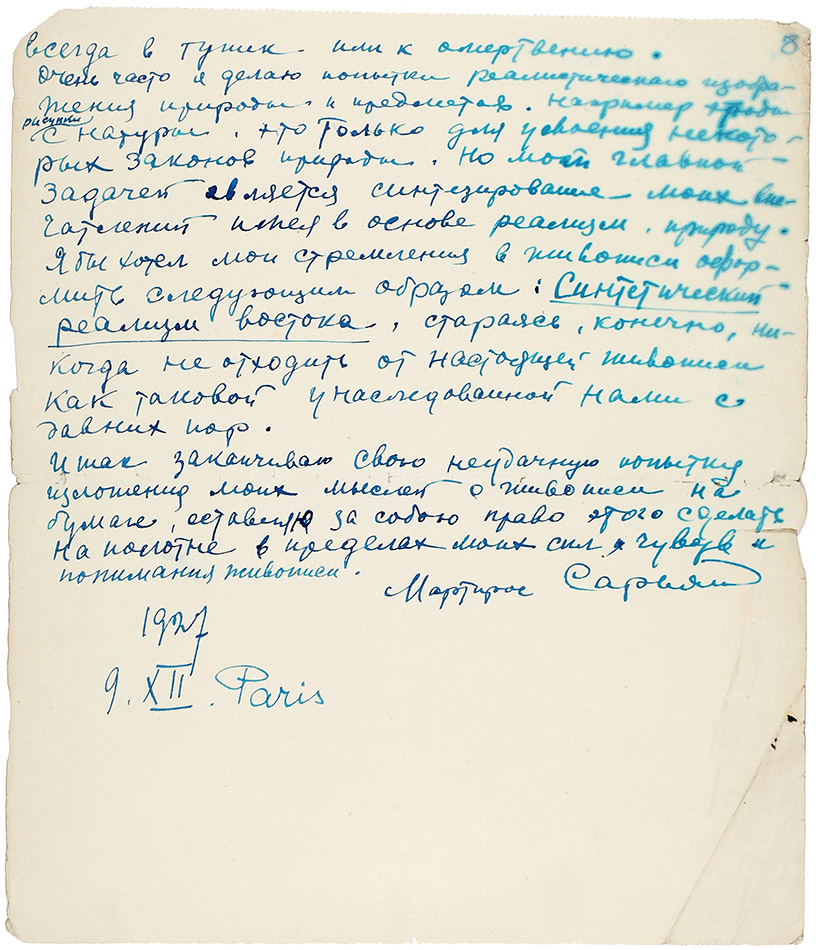 8
всегда в тупик или к омертвению.
Очень часто я делаю попытки реалистического изобра-
жения природы и предметов. Например
рисунки
с натуры, это только для усвоения некото-
рых законов природы. Но моей главной
задачей является синтезирование моих впе-
чатлений имея в основе реализм, природу.
Я бы хотел мои стремления в живописи офор-
мить следующим образом: Синтетический
реализм востока, стараясь, конечно, ни-
когда не отходить от настоящей живописи
как таковой унаследованной нами с
давних пор.
Итак заканчиваю свою неудачную попытку
изложения моих мыслей о живописи на
бумаге, оставляю за собою право этого сделать
на полотне в пределах моих сил, чувств и
понимания живописи.
Мартирос Сарьян
1927
9. XII. Paris